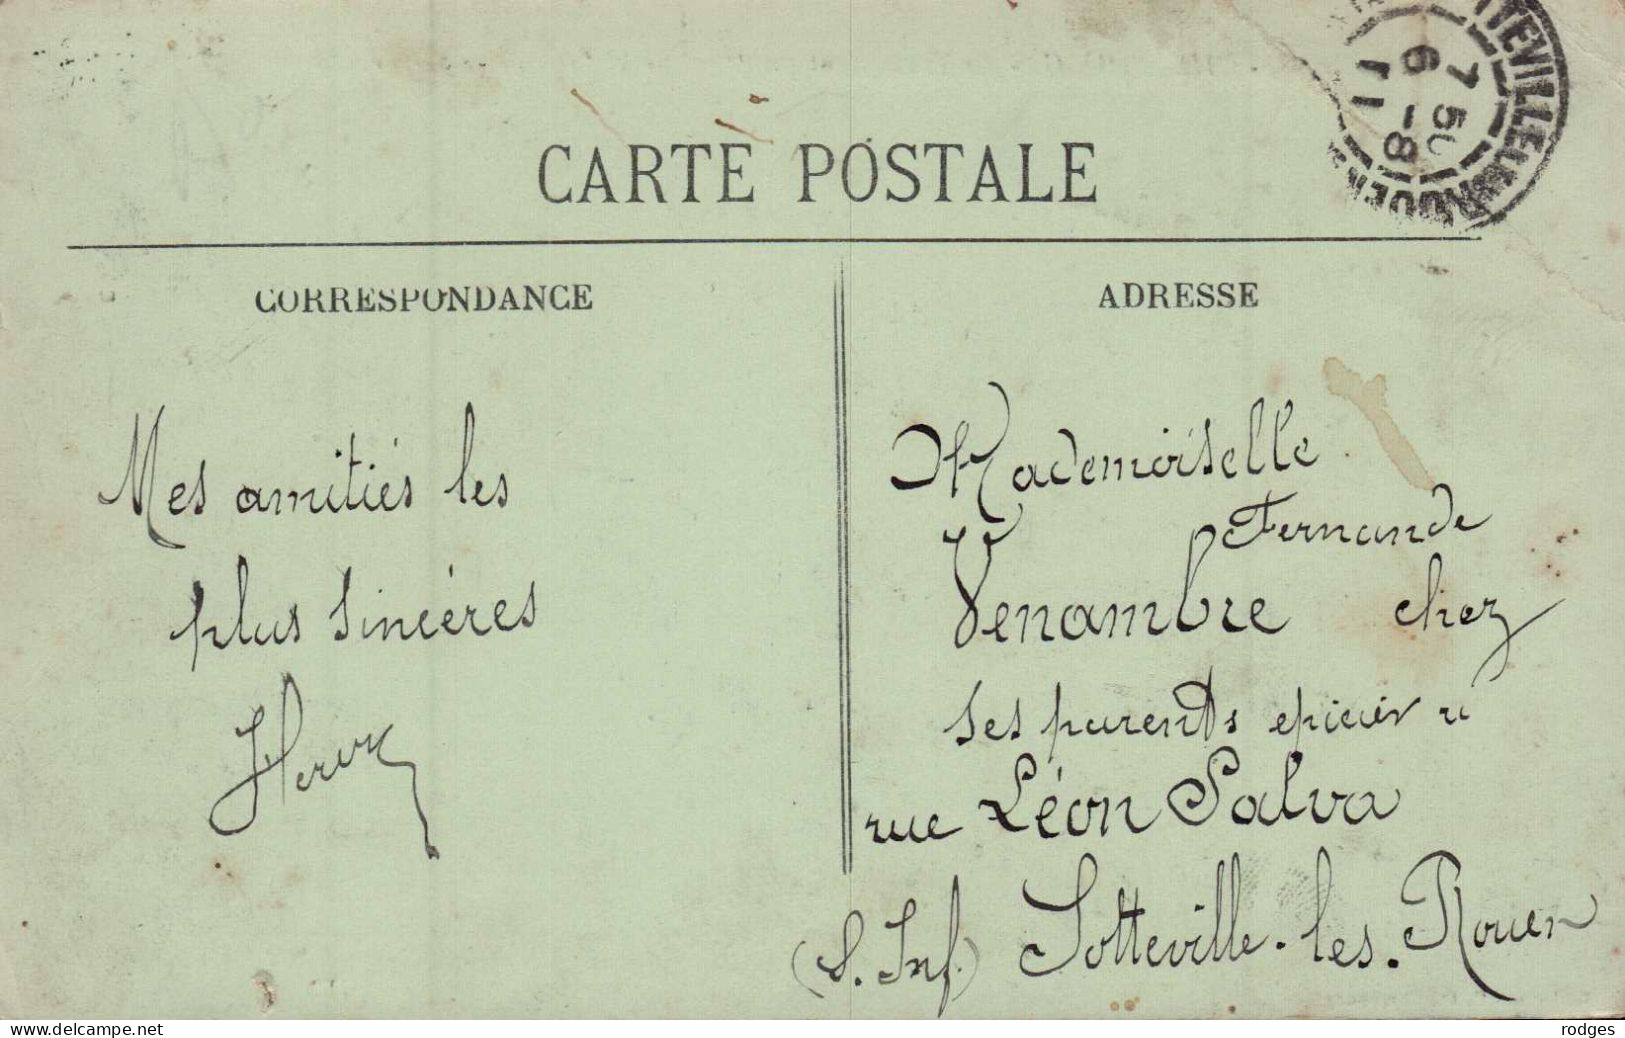 CARTE POSTALE
TTEVILLE ROUEN
7 50
6 -8
11
CORRESPONDANCE
Mes amitiés les
plus sincères
ADRESSE
Mademoiselle
Fernande
Venambre chez
ses parents epicier
rue Léon Salva
(S. Inf) Sotteville-les-Rouen
www.delcampe.net
rodges